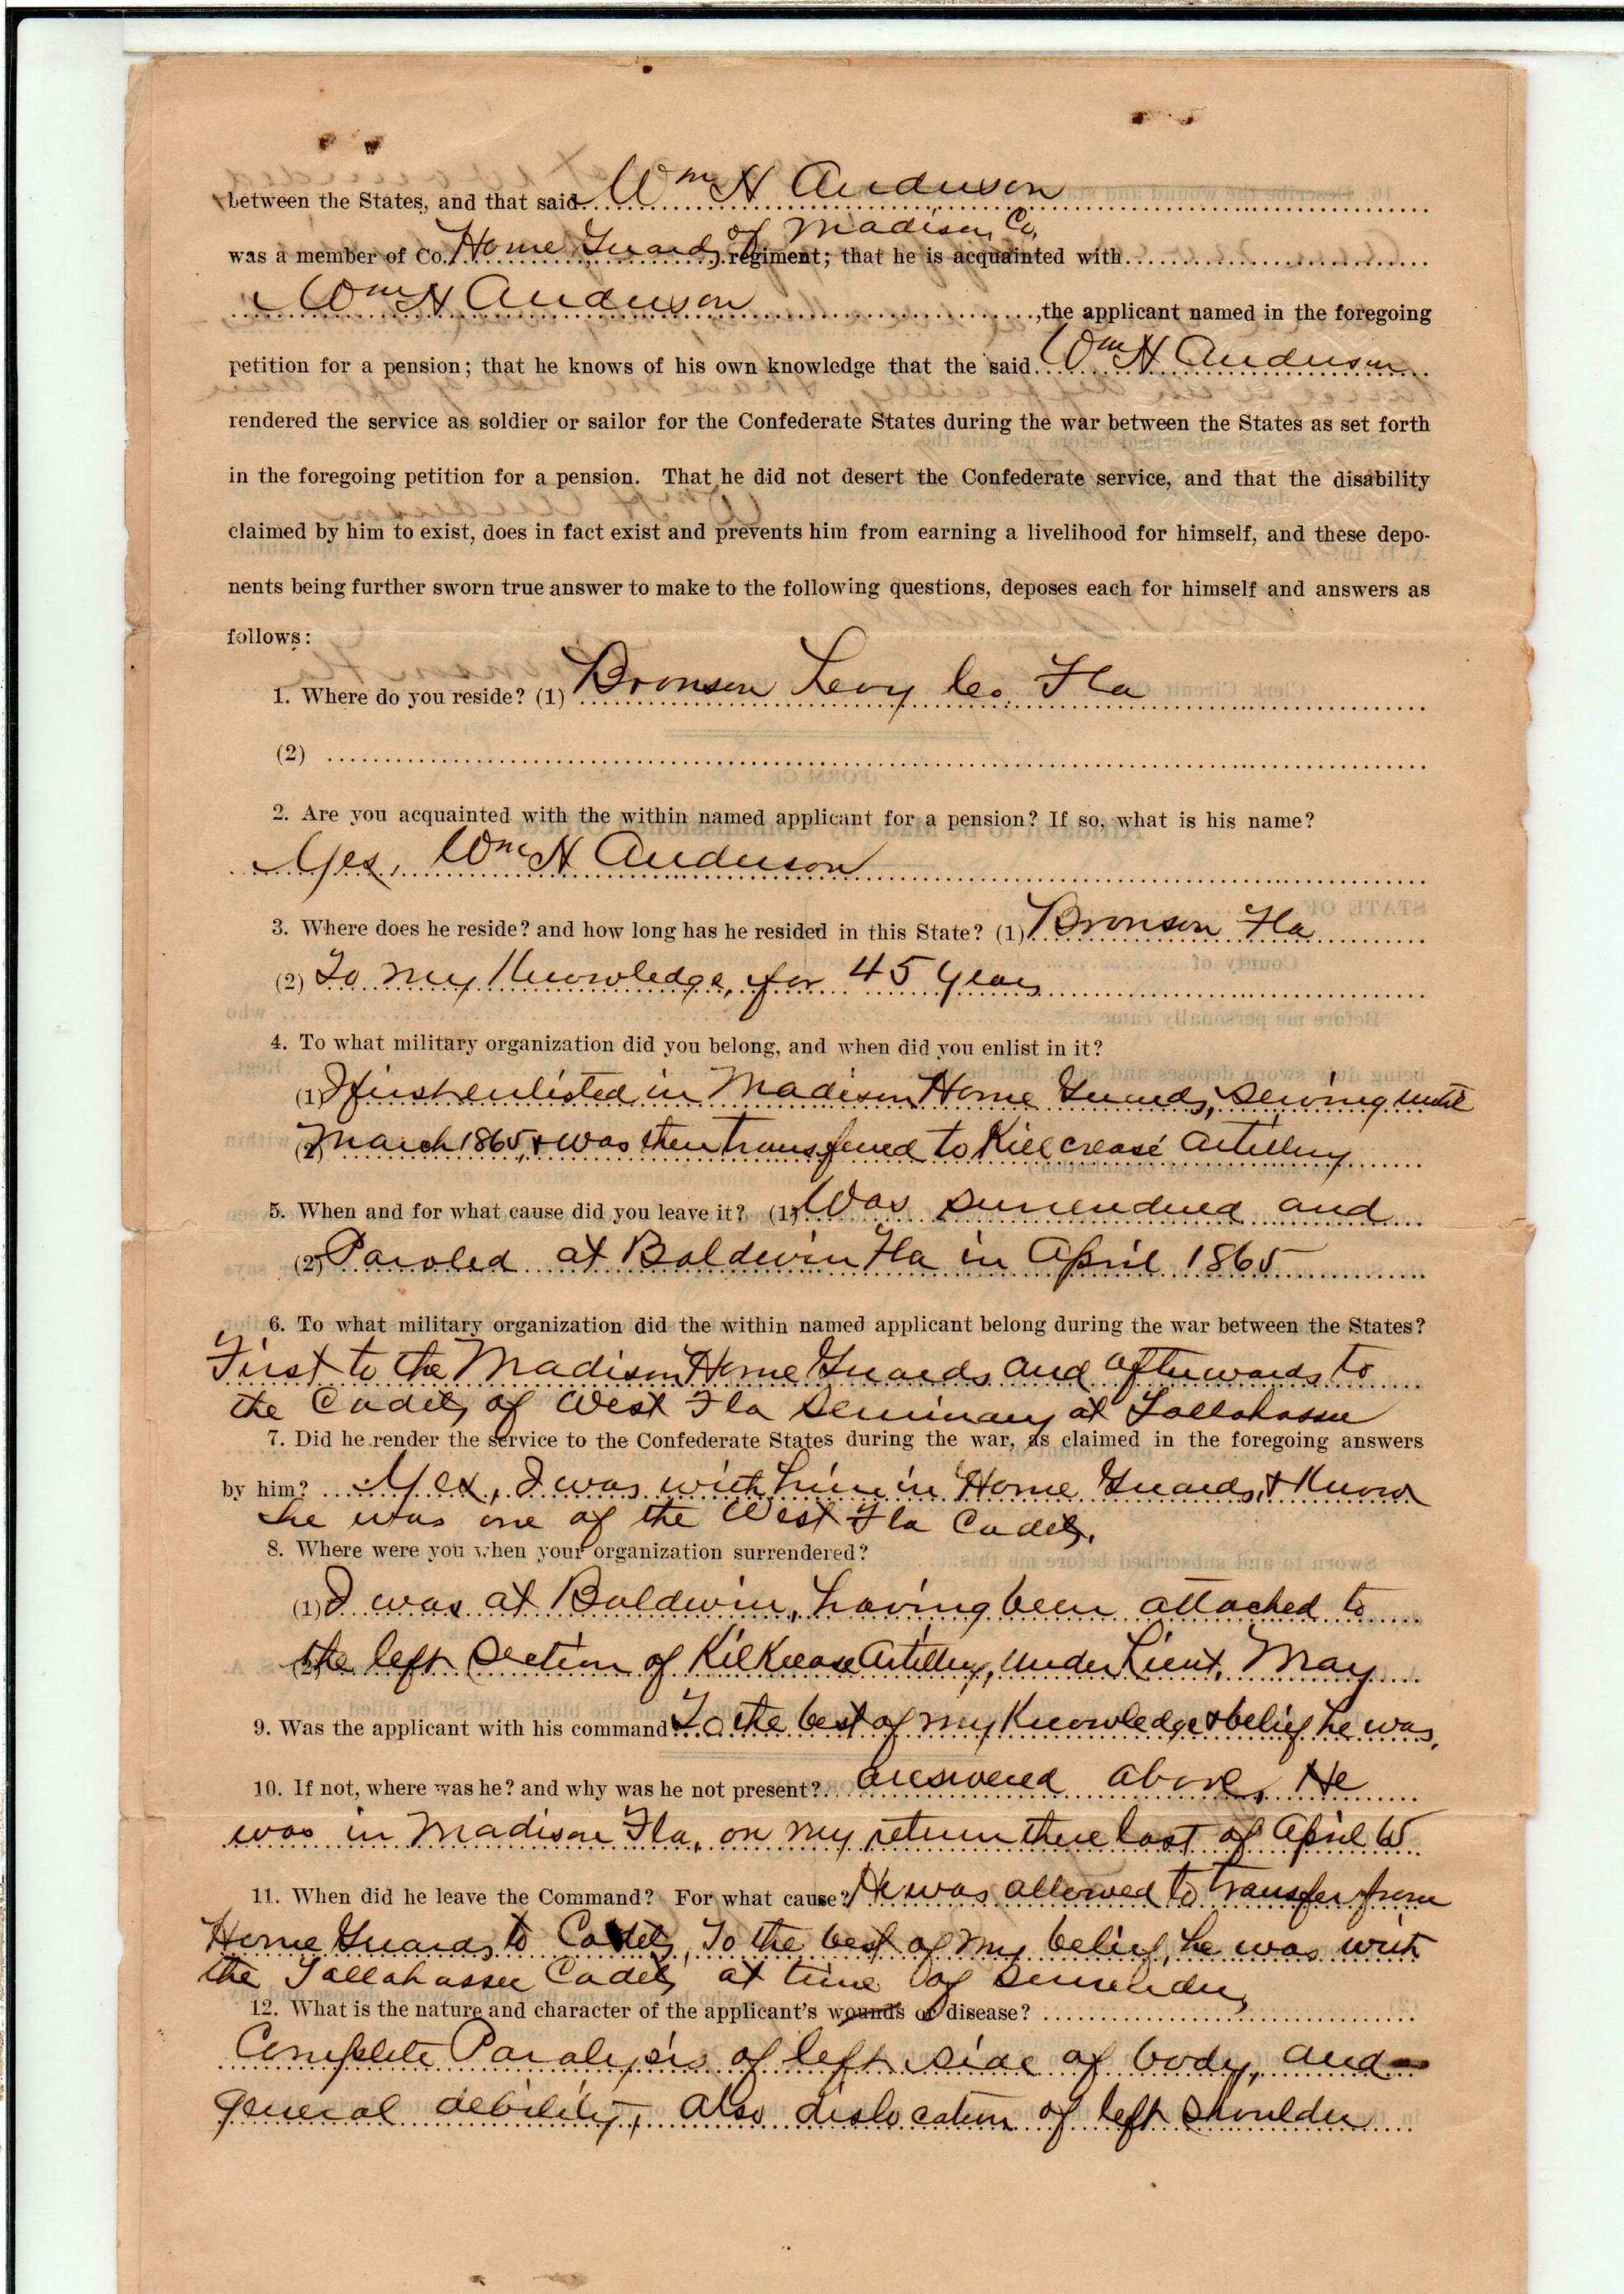 between the States, and that said Wm H Anderson
of Madison Co,
was a member of Co. Home Guards, regiment; that he is acquainted with
Wm H Anderson ,the applicant named in the foregoing
petition for a pension; that he knows of his own knowledge that the said Wm H Anderson
rendered the service as soldier or sailor for the Confederate States during the war between the States as set forth
in the foregoing petition for a pension. That he did not desert the Confederate service, and that the disability
claimed by him to exist, does in fact exist and prevents him from earning a livelihood for himself, and these depo-
nents being further sworn true answer to make to the following questions, deposes each for himself and answers as
follows:
1. Where do you reside? (1) Bronson Levy Co. Fla
(2)
2. Are you acquainted with the within named applicant for a pension? If so, what is his name?
Yes, Wm H Anderson
3. Where does he reside? and how long has he resided in this State? (1) Bronson Fla
(2) To my Knowledge, for 45 years
4. To what military organization did you belong, and when did you enlist in it?
(1) I first enlisted in Madison Home Guards, serving until
(2) March 1865, & was then transferred to Killcrease Artillery
5. When and for what cause did you leave it? (1) Was surrendered and
(2) Paroled at Baldwin Fla in April 1865
6. To what military organization did the within named applicant belong during the war between the States?
First to the Madison Home Guards and afterwards to
the Cadets of West Fla Seminary at Tallahassee
7. Did he render the service to the Confederate States during the war, as claimed in the foregoing answers
by him? Yes, I was with him in Home Guards, & Know
he was one of the West Fla Cadets.
8. Where were you when your organization surrendered?
(1) I was at Baldwin, having been attached to
(2) the left section of Kilkrease Artillery, under Lieut. May
9. Was the applicant with his command? To the best of my Knowledge & belief he was.
10. If not, where was he? and why was he not present? answered above. He
was in Madison Fla, on my return there last of April 65
11. When did he leave the Command? For what cause? He was allowed to transfer from
Home Guards to Cadets, To the best of my belief, he was with
the Tallahassee Cadets at time of surrender,
12. What is the nature and character of the applicant's wounds or disease?
Complete Paralysis of left side of body, and
general debility, also dislocation of left shoulder